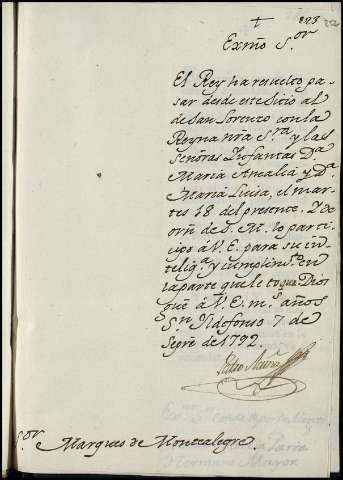 +
Exmo Sor
El Rey ha resuelto pa
sar desde este Sitio al
de San Lorenzo con la
Reyna nra Sra y las
Señoras Infantas Da
Maria Amalia y Da
Maria Luisa, el mar
tes 18 del presente. Y de
orn de S. M. lo parti
cipo á V. E. para su in
teliga y cumplimto en
la parte que le toque. Dios
gue á V. E. ms años
Sn Yldefonso 7 de
Sepre de 1792.
Sor Marques de Montealegre.